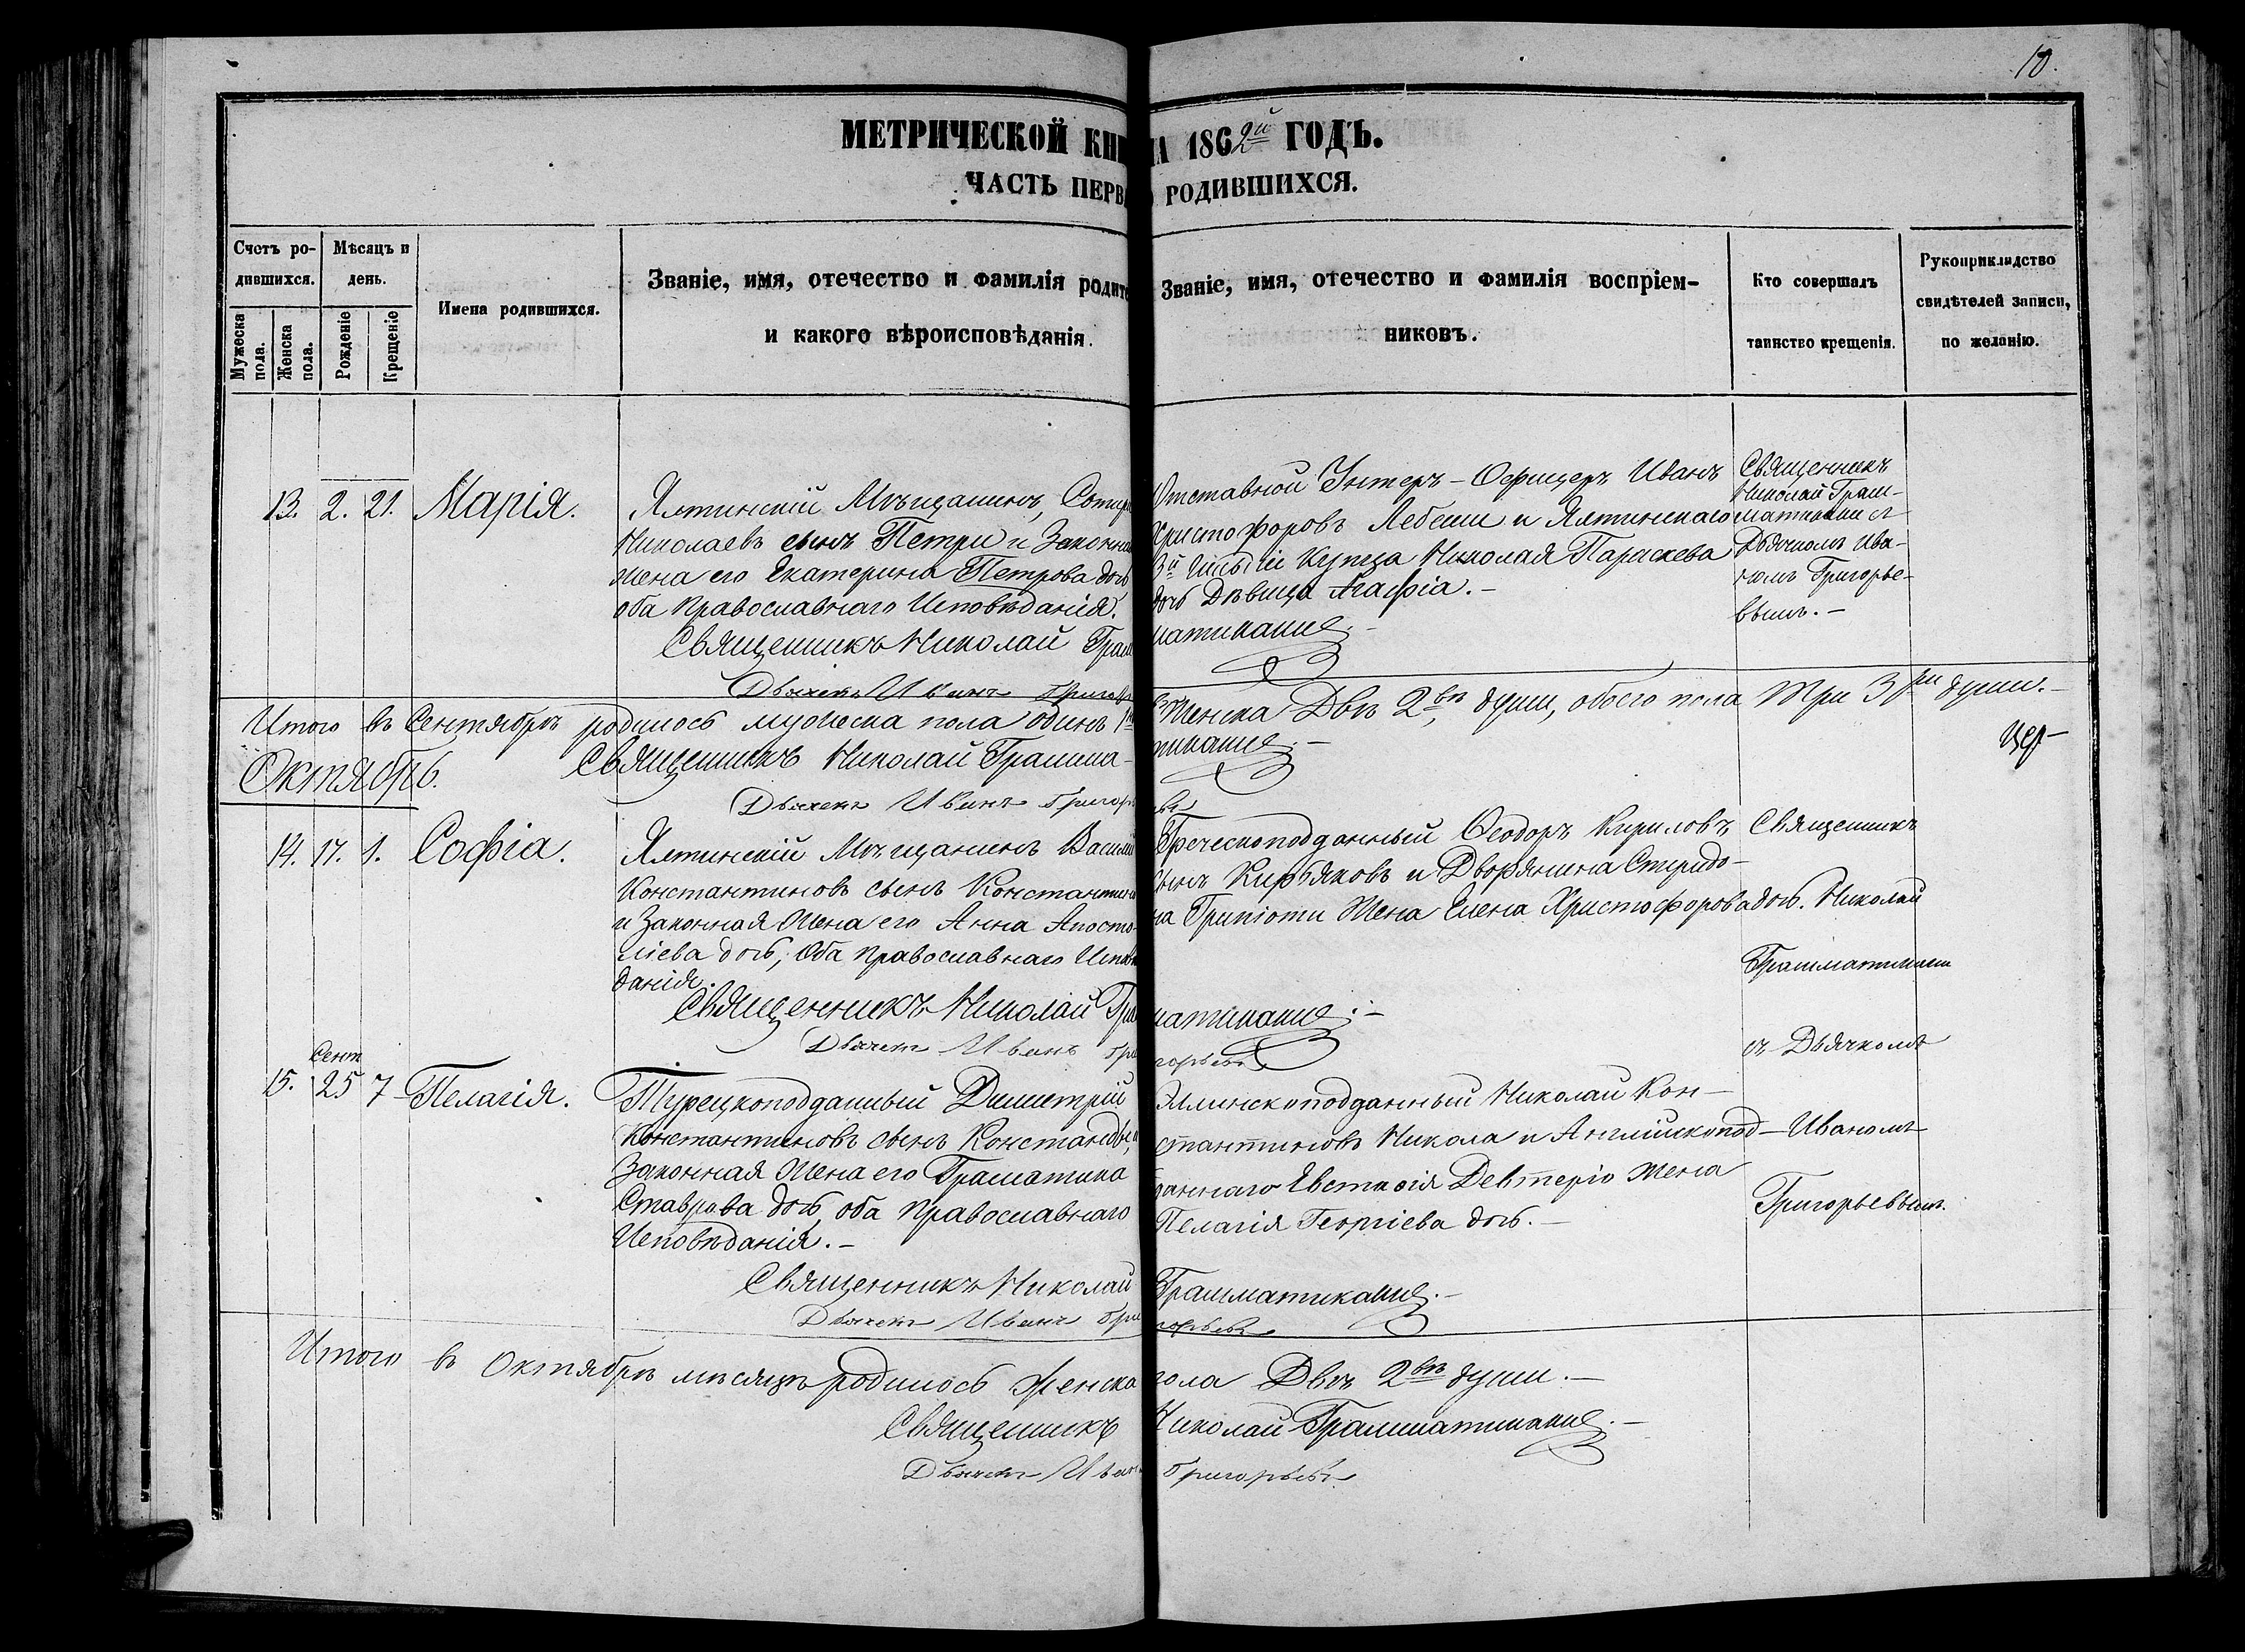 10.
МЕТРИЧЕСКОЙ КНИ НА 1862й ГОДЪ.
ЧАСТЬ ПЕРВ РОДИВШИХСЯ.
Счетъ ро-
дившихся.
Мужеска
пола.
Женска
пола.
Мѣсяцъ и
день.
Рожденіе
Крещеніе
Имена родившихся.
Званіе, имя, отечество и фамилія родите
и какого вѣроисповѣданія.
Званіе, имя, отечество и фамилія воспріем-
никовъ.
Кто совершалъ
таинство крещенія.
Рукоприкладство
свидѣтелей записи,
по желанію.
13. 2. 21. Марія.
Ялтинскій Мѣщанинъ, Сотир
Николаевъ сынъ Петри и Законна
жена его Екатерина Петрова дочь
оба Православнаго Исповѣданія.
Отставной Унтеръ-Офицеръ Иванъ
Христофоровъ Лебеши и Ялтинскаго
3й Гильдіи Купца Николая Параскева
дочь Дѣвица Агафіа.-
Священникъ
Николай Грам-
матикаки съ
Дьячкомъ Ива-
номъ Григорье-
вымъ.-
Священникъ Николай Грам матикаки.-
Дьячекъ Иванъ Григорь
Итого въ Сентябрѣ родилось мужеска пола одинъ 1нъ Женска Двѣ 2вѣ души, обоего пола три 3ри души.-
Священникъ Николай Грамма- тикаки.-
Дьячекъ Иванъ Григорь евъ
Октябрь.
14. 17. 1. Софіа.
Ялтинскій Мѣщанинъ Василій
Константиновъ сынъ Константин
и Законная Жена его Анна Апосто-
ліева дочь, Оба Православнаго Испов
данія.
Греческоподданный Ѳеодоръ Кириловъ
сынъ Кирьяковъ и Дворянина Спиридо-
на Грипіоти Жена Елена Христофорова дочь.
Священникъ
Николай
Грамматикаки
съ Дьячкомъ
Иваномъ
Григорьевымъ.
Священникъ Николай Гра матикаки.-
Дьячекъ Иванъ Гри горьевъ
Сент
15. 25 7 Пелагія.
Турецкоподданный Димитрій
Константиновъ сынъ Констанд
Законная Жена его Граматика
Ставрова дочь, оба Православнаго
Исповѣданія.-
Эллинскоподданный Николай Кон-
стантиновъ Никола и Англійскопод-
даннаго Евстаѳія Девтеріо жена
Пелагія Георгіева дочь.-
Священникъ Николай Грамматикаки.-
Дьячекъ Иванъ Гри горьевъ
Итого въ Октябрѣ мѣсяцѣ родилось Женска пола Двѣ 2вѣ души.-
Священникъ Николай Грамматикаки.-
Дьячекъ Иван Григорьевъ